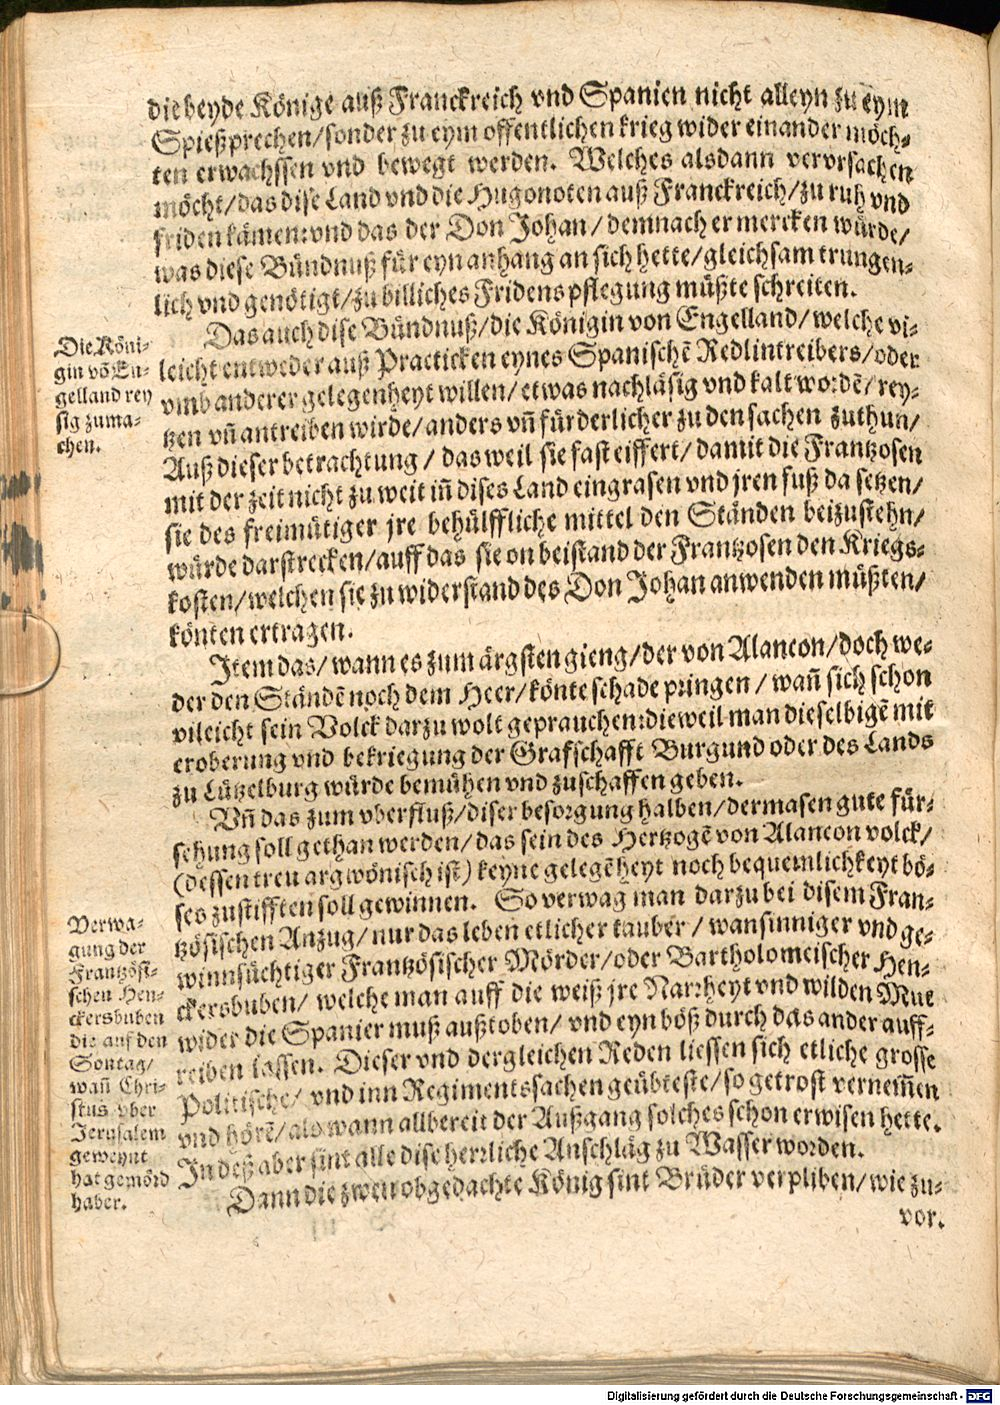 die beyde Könige auß Franckreich vnd Spanien nicht alleyn zu eym
Spießprechen/sonder zu eym offentlichen krieg wider einander möch-
ten erwachssen vnd bewegt werden. Welches alsdann vervrsachen
möcht/das dise Land vnd die Hugonoten auß Franckreich/zu ruh vnd
friden kämen:vnd das der Don Johan/demnach er mercken würde/
was diese Bündnuß für eyn anhang an sich hette/gleichsam trungen-
lich vnd genötigt/zu billiches Fridenspflegung müßte schreiten.
Das auch dise Bündnuß/die Königin von Engelland/welche vi-
leicht entweder auß Practicken eynes Spanischē Redlintreibers/oder
vmb anderer gelegenheyt willen/etwas nachläsig vnd kalt wordē/rey-
tzen vñ antreiben wirde/anders vñ fürderlicher zu den sachen zuthun/
Auß dieser betrachtung/das weil sie fast eiffert/damit die Frantzosen
mit der zeit nicht zu weit iñ dises Land eingrasen vnd jren fuß da setzen/
sie des freimütiger jre behülffliche mittel den Ständen beizustehn/
würde darstrecken/auff das sie on beistand der Frantzosen den Kriegs-
kosten/welchen sie zu widerstand des Don Johan anwenden müßten/
könten ertragen.
Die Köni-
gin vō En-
gelland rey
sig zuma-
chen.
Item das/wann es zum ärgsten gieng/der von Alancon/doch we-
der den Ständē noch dem Heer/könte schade pringen/wañ sich schon
vileicht sein Volck darzu wolt geprauchen:dieweil man dieselbigē mit
eroberung vnd bekriegung der Grafschafft Burgund oder des Lands
zu Lützelburg würde bemühen vnd zuschaffen geben.
Vñ das zum vberfluß/diser besorgung halben/dermasen gute für-
sehung soll gethan werden/das sein des Hertzogē von Alancon volck/
(dessen treu argwönisch ist) keyne gelegēheyt noch bequemlichkeyt bö-
ses zustifften soll gewinnen. So verwag man darzu bei disem Fran-
tzösischen Anzug/nur das leben etlicher tauber/wansinniger vnd ge-
winnsüchtiger Frantzösischer Mörder/oder Bartholomeischer Hen-
ckersbuben/welche man auff die weiß jre Narrheyt vnd wilden Mut
wider die Spanier muß außtoben/vnd eyn böß durch das ander auff-
reiben lassen. Dieser vnd dergleichen Reden liessen sich etliche grosse
Politische/vnd inn Regimentssachen geübteste/so getrost vernem̃en
vnd hörē/als wann allbereit der Außgang solches schon erwisen hette.
In deß aber sint alle dise herrliche Anschläg zu Wasser worden.
Verwa-
gung der
Frantzösi-
schen Hen-
ckersbuben
die auf den
Sontag/
wañ Chri-
stus vber
Jerusalem
geweynt
hat gemörd
haber.
Dann die zwen obgedachte König sint Brüder verpliben/wie zu-
vor.
Digitalisierung gefördert durch die Deutsche Forschungsgemeinschaft - DFG